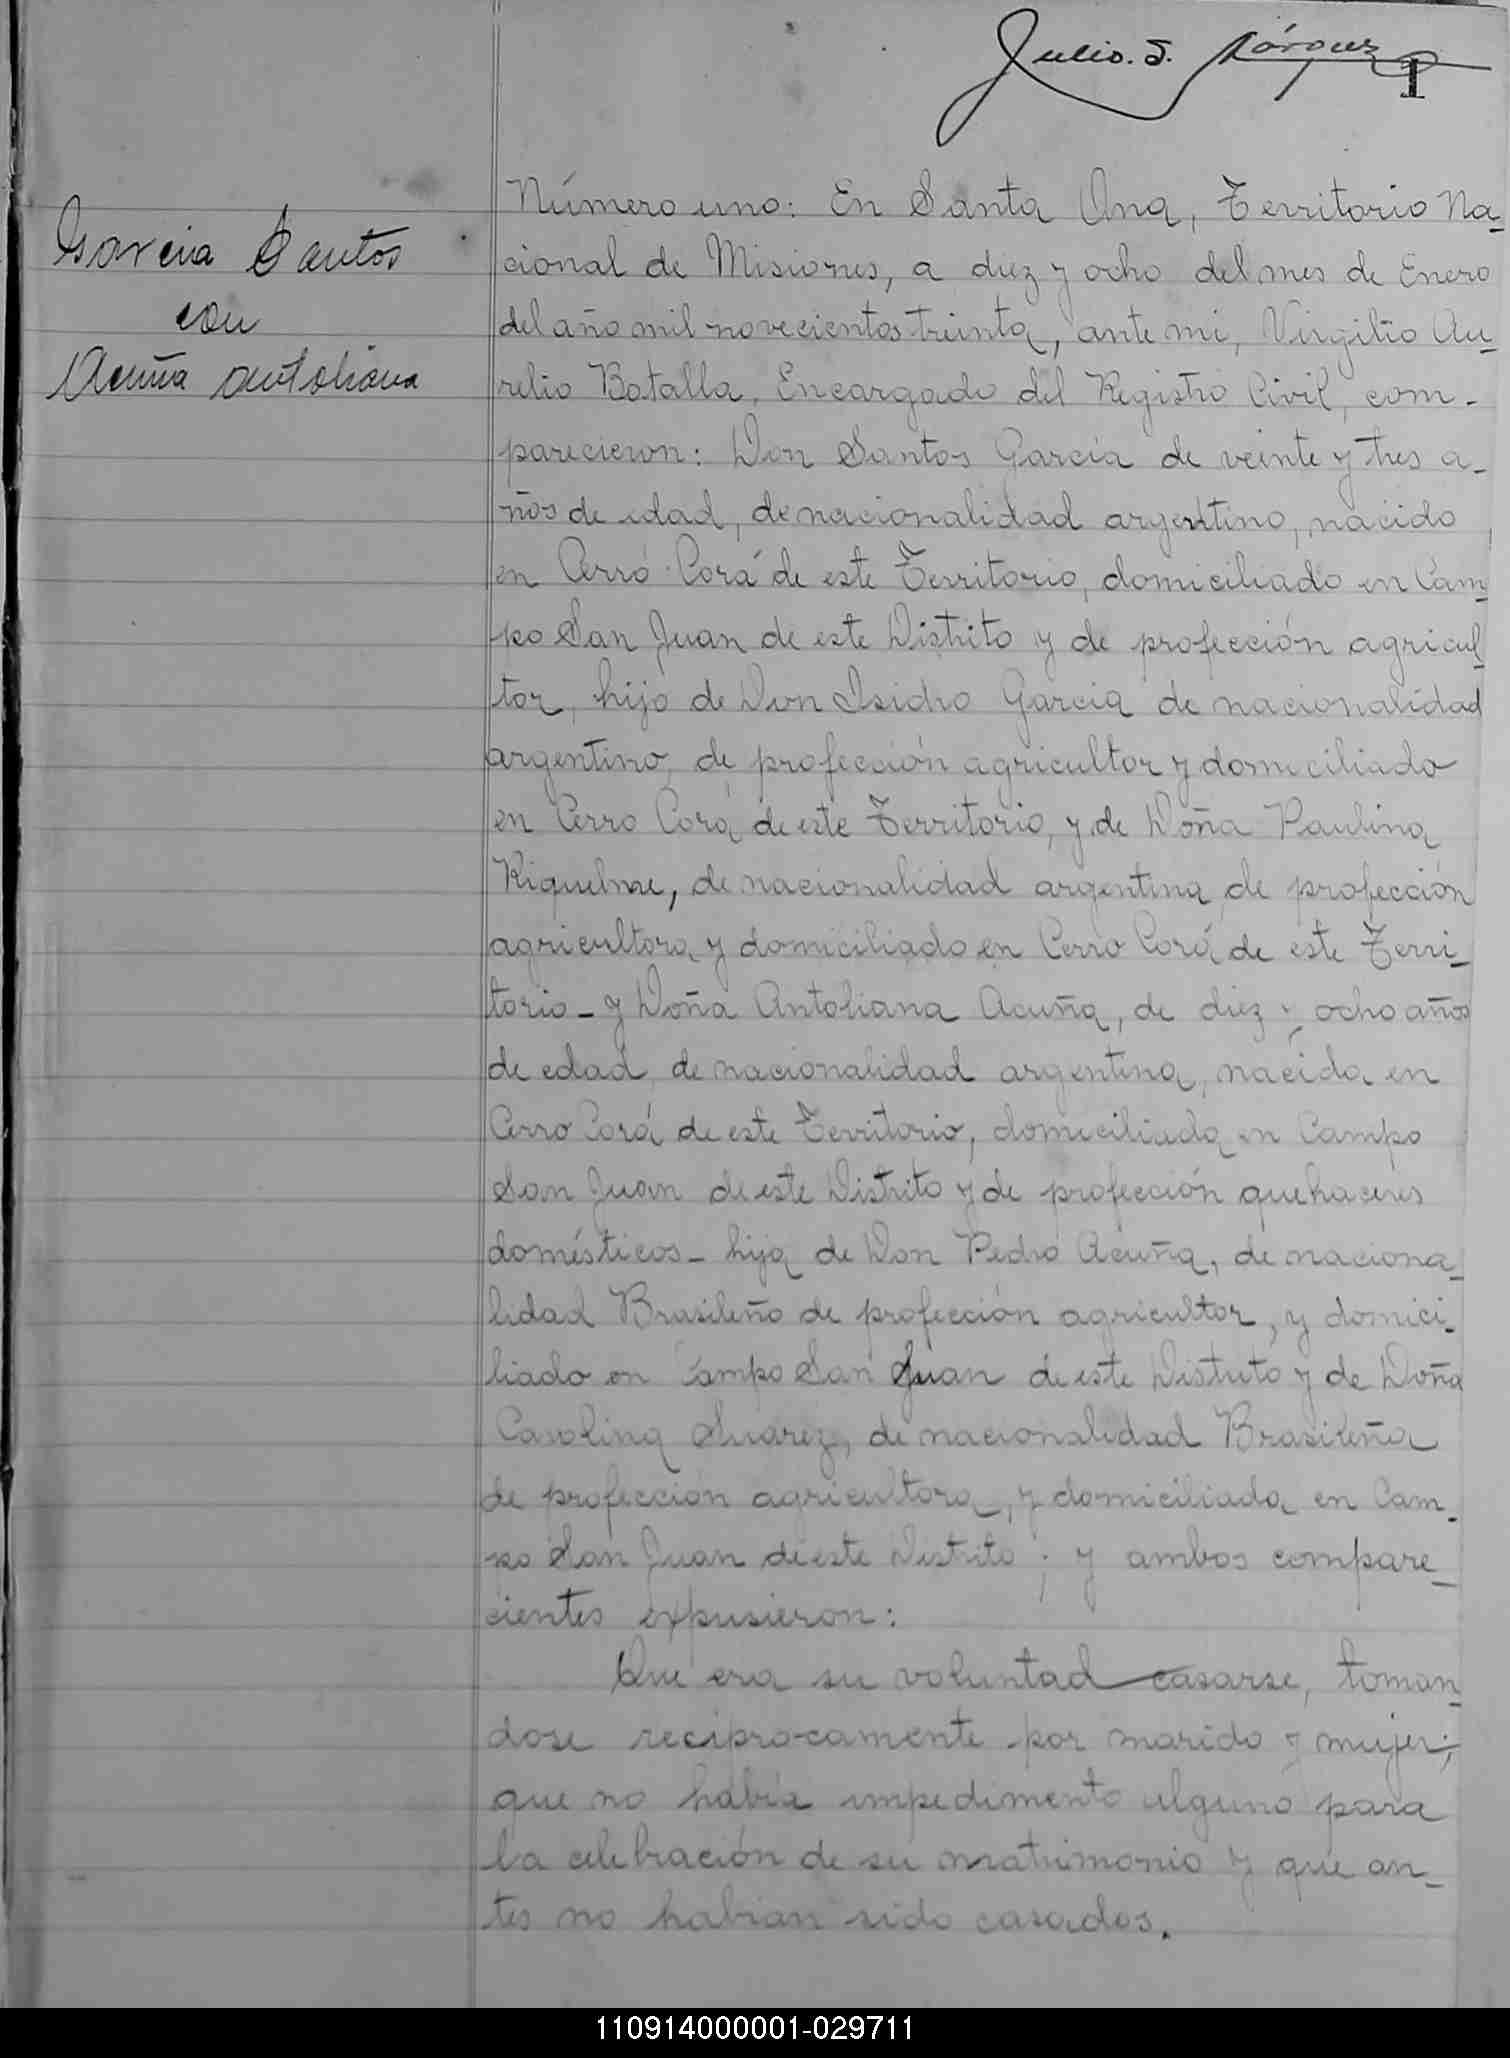 Julio. S.
1
Garcia Santos
con
Acuña Antoliana
Número uno: En Santa Ana, Territorio Na-
cional de Misiones, a diez y ocho del mes de Enero
del año mil novecientos treinta, ante mi, Virgilio Au-
relio Batalla, Encargado del Registro Civil, com-
parecieron: Don Santos García de veinte y tres a-
ños de edad, de nacionalidad argentino, nacido
en Cerro Corá de este Territorio, domiciliado en Cam-
po San Juan de este Distrito y de profección agricul-
tor, hijo de Don Isidro Garcia de nacionalidad
argentino, de profección agricultor y domiciliado
en Cerro Corá de este Territorio, y de Doña Paulina
Riquelme, de nacionalidad argentina, de profección
agricultora y domiciliado en Cerro Corá de este Terri-
torio - y Doña Antoliana Acuña, de diez y ocho años
de edad, de nacionalidad argentina, nacida en
Cerro Corá de este Territorio, domiciliada en Campo
San Juan de este Distrito y de profección quehaceres
domésticos - hija de Don Pedro Acuña, de naciona-
lidad Brasileño de profección agricultor, y domici-
liado en Campo San Juan de este Distrito y de Doña
Carolina Suarez, de nacionalidad Brasileña
de profección agricultora, y domiciliada en Cam-
po San Juan de este Distrito; y ambos compare-
cientes expusieron:
Que era su voluntad casarse, toman-
dose recíprocamente por marido y mujer;
que no había impedimento alguno para
la celebración de su matrimonio y que an-
tes no habían sido casados.
110914000001-029711